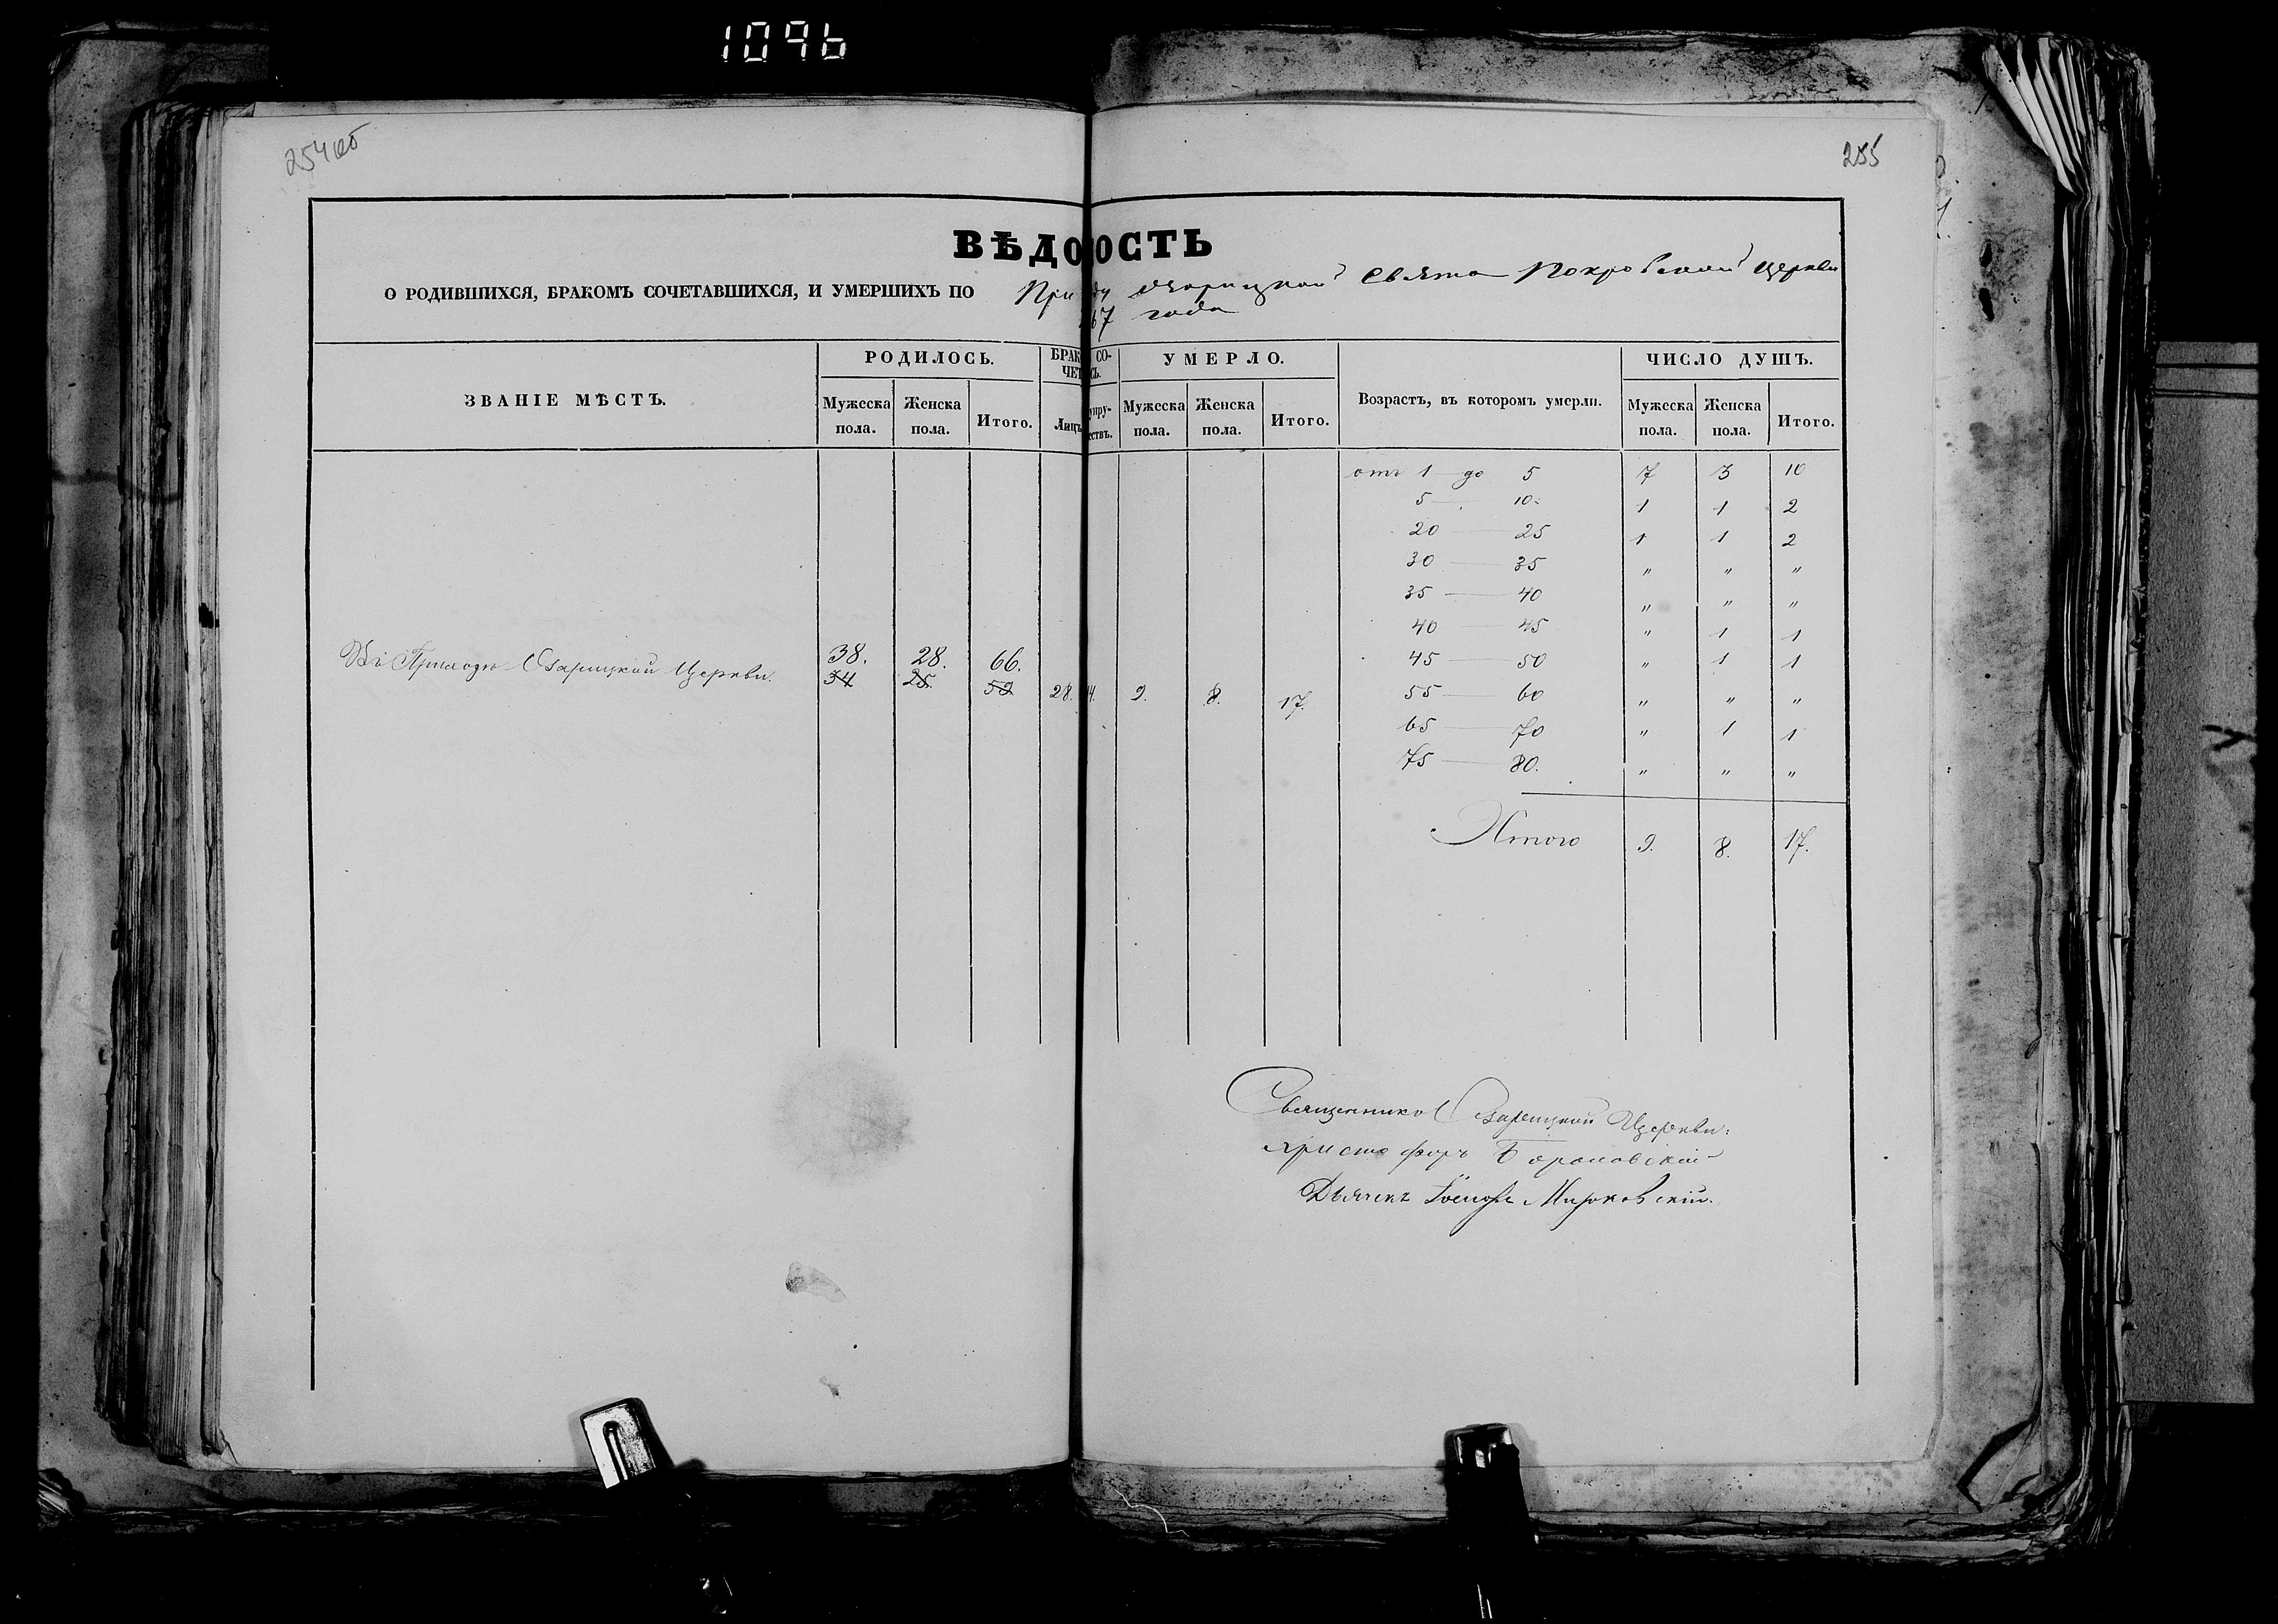 1096
254об
255
ВѢДО ОСТЬ
О РОДИВШИХСЯ, БРАКОМЪ СОЧЕТАВШИХСЯ, И УМЕРШИХЪ ПО При ду Озарицкой Свято Покровской церкви
67 года
ЗВАНІЕ МѢСТЪ.
РОДИЛОСЬ.
Мужеска пола.
Женска пола.
Итого.
БРАК СО-
ЧЕТ СЬ.
Лицъ
упру-
ествъ.
УМЕРЛО.
Мужеска пола.
Женска пола.
Итого.
Возрастъ, въ которомъ умерли.
ЧИСЛО ДУШЪ.
Мужеска пола.
Женска пола.
Итого.
отъ 1 — до 5 7 3 10
5 — 10. 1 1 2
20 — 25 1 1 2
30 — 35 " " "
35 — 40 " " "
40 — 45 " 1 1
45 — 50 " 1 1
55 — 60 " " "
65 — 70 " 1 1
75 — 80. " " "
Въ Приходѣ Озарицкой Церкви. 38. 28. 66.
34 25. 59 28. 14. 9. 8. 17.
Итого 9. 8. 17.
Священникъ Озарицкой Церкви:
Христофоръ
Дьячекъ Мирковскій.